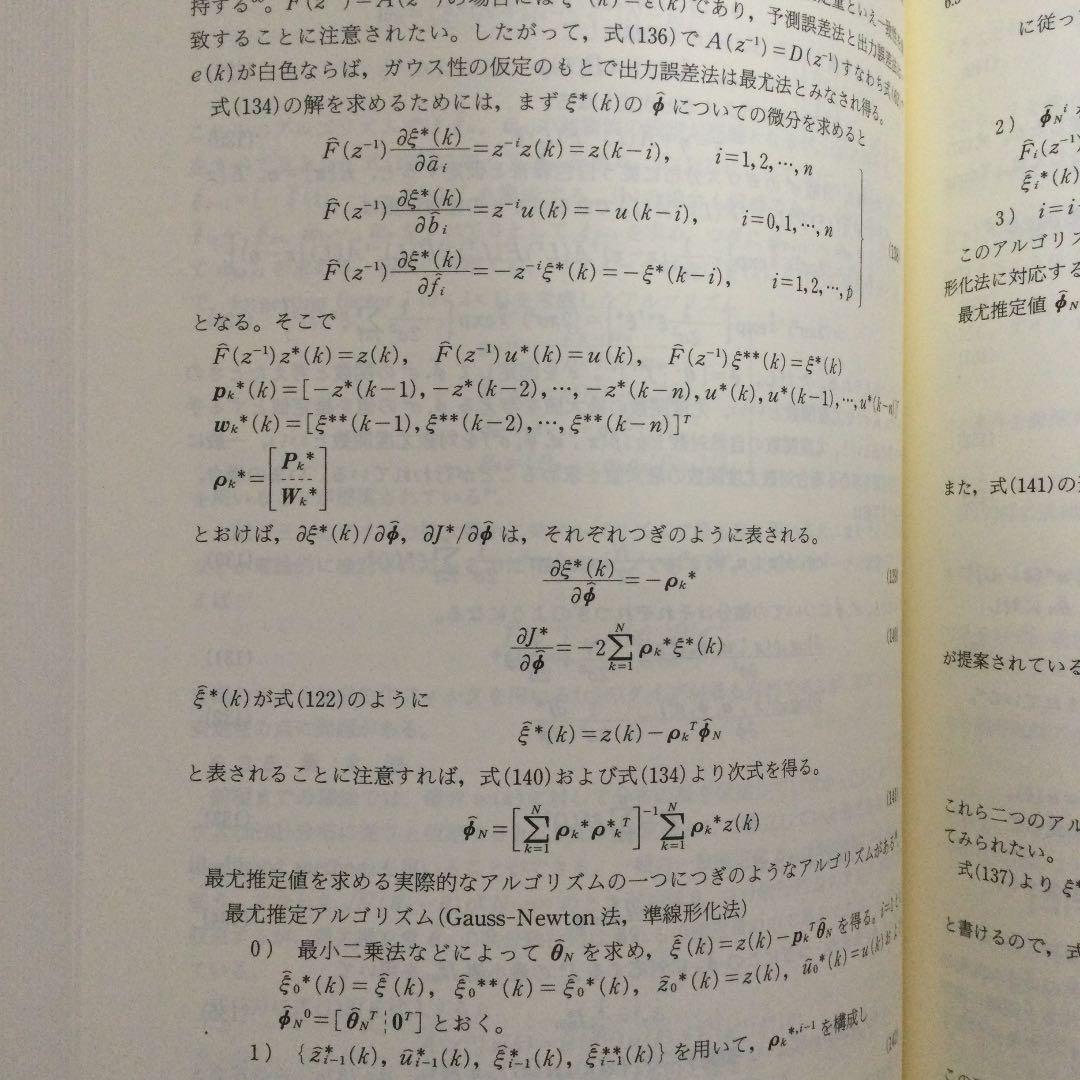 致することに注意されたい。したがって，式(136)で A(z⁻¹)=D(z⁻¹)すなわち式
e(k)が白色ならば，ガウス性の仮定のもとで出力誤差法は最尤法とみなされ得る。
式(134)の解を求めるためには，まず ξ*(k)の φ̂ についての微分を求めると
F̂(z⁻¹) ∂ξ*(k)/∂âᵢ =z⁻ⁱz(k)=z(k−i), i=1,2,⋯,n
F̂(z⁻¹) ∂ξ*(k)/∂b̂ᵢ =z⁻ⁱu(k)=−u(k−i), i=0,1,⋯,n
F̂(z⁻¹) ∂ξ*(k)/∂f̂ᵢ =−z⁻ⁱξ*(k)=−ξ*(k−i), i=1,2,⋯,p
となる。そこで
F̂(z⁻¹)z*(k)=z(k), F̂(z⁻¹)u*(k)=u(k), F̂(z⁻¹)ξ**(k)=ξ*(k)
pₖ*(k)=[−z*(k−1), −z*(k−2), ⋯, −z*(k−n), u*(k), u*(k−1), ⋯, u*(k−n)]ᵀ
wₖ*(k)=[ξ**(k−1), ξ**(k−2), ⋯, ξ**(k−n)]ᵀ
ρₖ*=[Pₖ* / Wₖ*]
とおけば，∂ξ*(k)/∂φ̂, ∂J*/∂φ̂ は，それぞれつぎのように表される。
∂ξ*(k)/∂φ̂ =−ρₖ*
∂J*/∂φ̂ =−2∑ₖ₌₁ᴺ ρₖ*ξ*(k)
ξ̂*(k)が式(122)のように
ξ̂*(k)=z(k)−ρₖᵀφ̂_N
と表されることに注意すれば，式(140)および式(134)より次式を得る。
φ̂_N=[∑ₖ₌₁ᴺ ρₖ*ρ*ₖᵀ]⁻¹∑ₖ₌₁ᴺ ρₖ*z(k)
最尤推定値を求める実際的なアルゴリズムの一つにつぎのようなアルゴリズムがある
最尤推定アルゴリズム(Gauss-Newton 法，準線形化法)
0) 最小二乗法などによって θ̂_N を求め，ξ̂(k)=z(k)−pₖᵀθ̂_N を得る。
ξ̂₀*(k)=ξ̂(k), ξ̂₀**(k)=ξ̂₀*(k), ẑ₀*(k)=z(k), û₀*(k)=u(k)
φ̂_N⁰=[θ̂_Nᵀ ¦ 0ᵀ] とおく。
1) {ẑ*ᵢ₋₁(k), û*ᵢ₋₁(k), ξ̂*ᵢ₋₁(k), ξ̂**ᵢ₋₁(k)} を用いて，ρₖ*,ⁱ⁻¹ を構成し
に従っ
2) φ̂_Nⁱ
F̂ᵢ(z⁻
ξ̂ᵢ*(k)
3) i=i
このアルゴリズ
形化法に対応する
最尤推定値 φ̂_N
また，式(141)の
が提案されている
これら二つのアル
てみられたい。
式(137)より ξ*
と書けるので，式